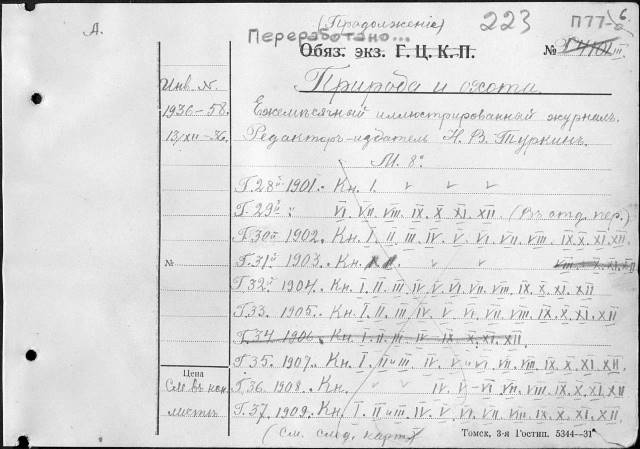 (Продолженiе)
А.
223
П77-
Переработано...
Обяз. экз. Г. Ц. К. П.
№
Природа и охота.
Инв. N.
1936-58.
13/XII-36.
Ежемѣсячный иллюстрированный журналъ.
Редакторъ-издатель Н. В. Туркинъ.
М. 8º
Г. 28й 1901. Кн. I. v v v
Г. 29й " VI. VII. VIII. IX. X. XI. XII. (Въ отд. пер.)
Г. 30й 1902. Кн. I. II. III. IV. V. VI. VII. VIII. IX. X. XI. XII.
№
Г. 31й 1903. Кн. I. II. v v v VIII. X. XI. XII
Г. 32й 1904. Кн. I. II. III. IV. V. VI. VII. VIII. IX. X. XI. XII
Г. 33. 1905. Кн. I. II. III. IV. V. VI. VII. VIII. IX. X. XI. XII
Г. 34 1906. Кн. I. II. III. IV. IX. X. XI. XII.
Г. 35. 1907. Кн. I. II и III. IV. V и VI. VII. VIII. IX. X. XI. XII
Цена
См. въ кон.
листы
Г. 36. 1908. Кн. v v IV. V-VI. VII. VIII. IX. X. XI. XII
Г. 37. 1909. Кн. I. II и III. IV. V. VI. VII. VIII. IX. X. XI. XII.
(См. след. карт.)
Томск, 3-я Гостип. 5344-31